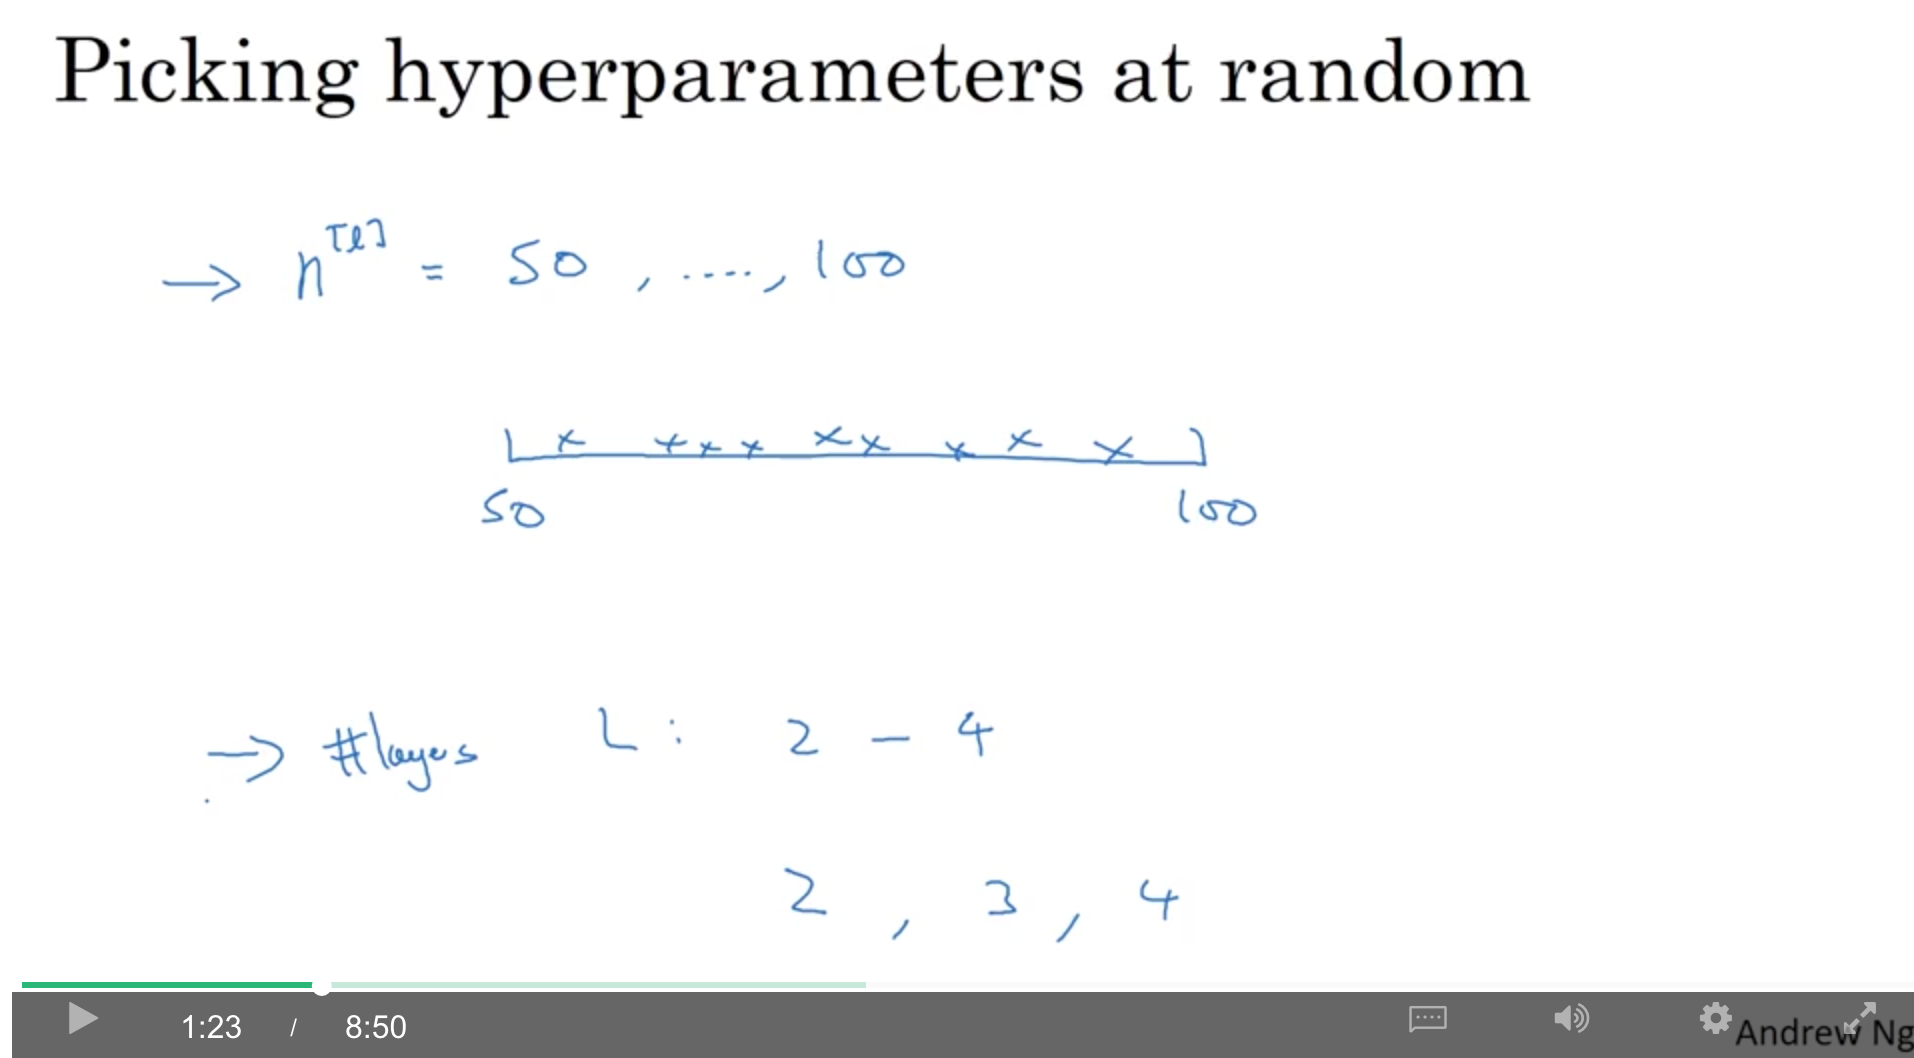 Picking hyperparameters at random
→ n[l] = 50, ...., 100
50 100
→ #layers L: 2 - 4
2, 3, 4
1:23 / 8:50
Andrew Ng